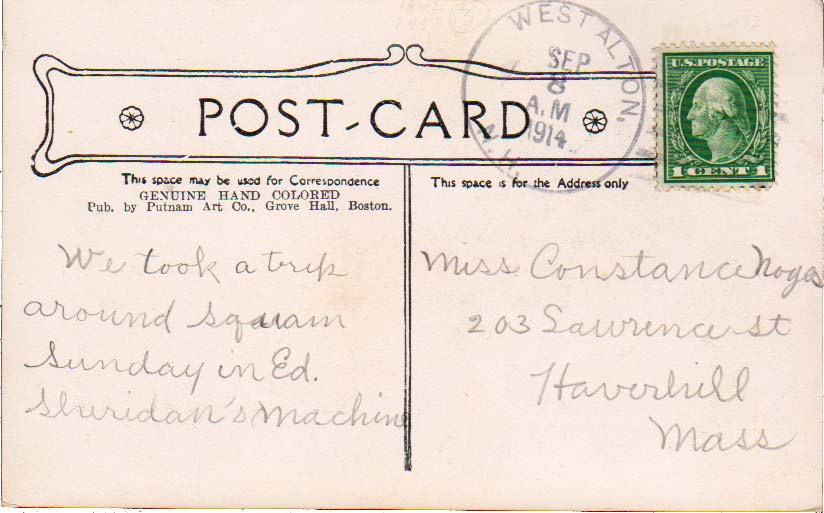 WEST ALTON,
SEP
8
A.M
1914
N.H.
U.S. POSTAGE
1 CENT 1
POST-CARD
This space may be used for Correspondence
GENUINE HAND COLORED
Pub. by Putnam Art Co., Grove Hall, Boston.
This space is for the Address only
We took a trip
around Squam
Sunday in Ed.
Sheridan's machine
Miss Constance Noyes
203 Lawrence st
Haverhill
Mass